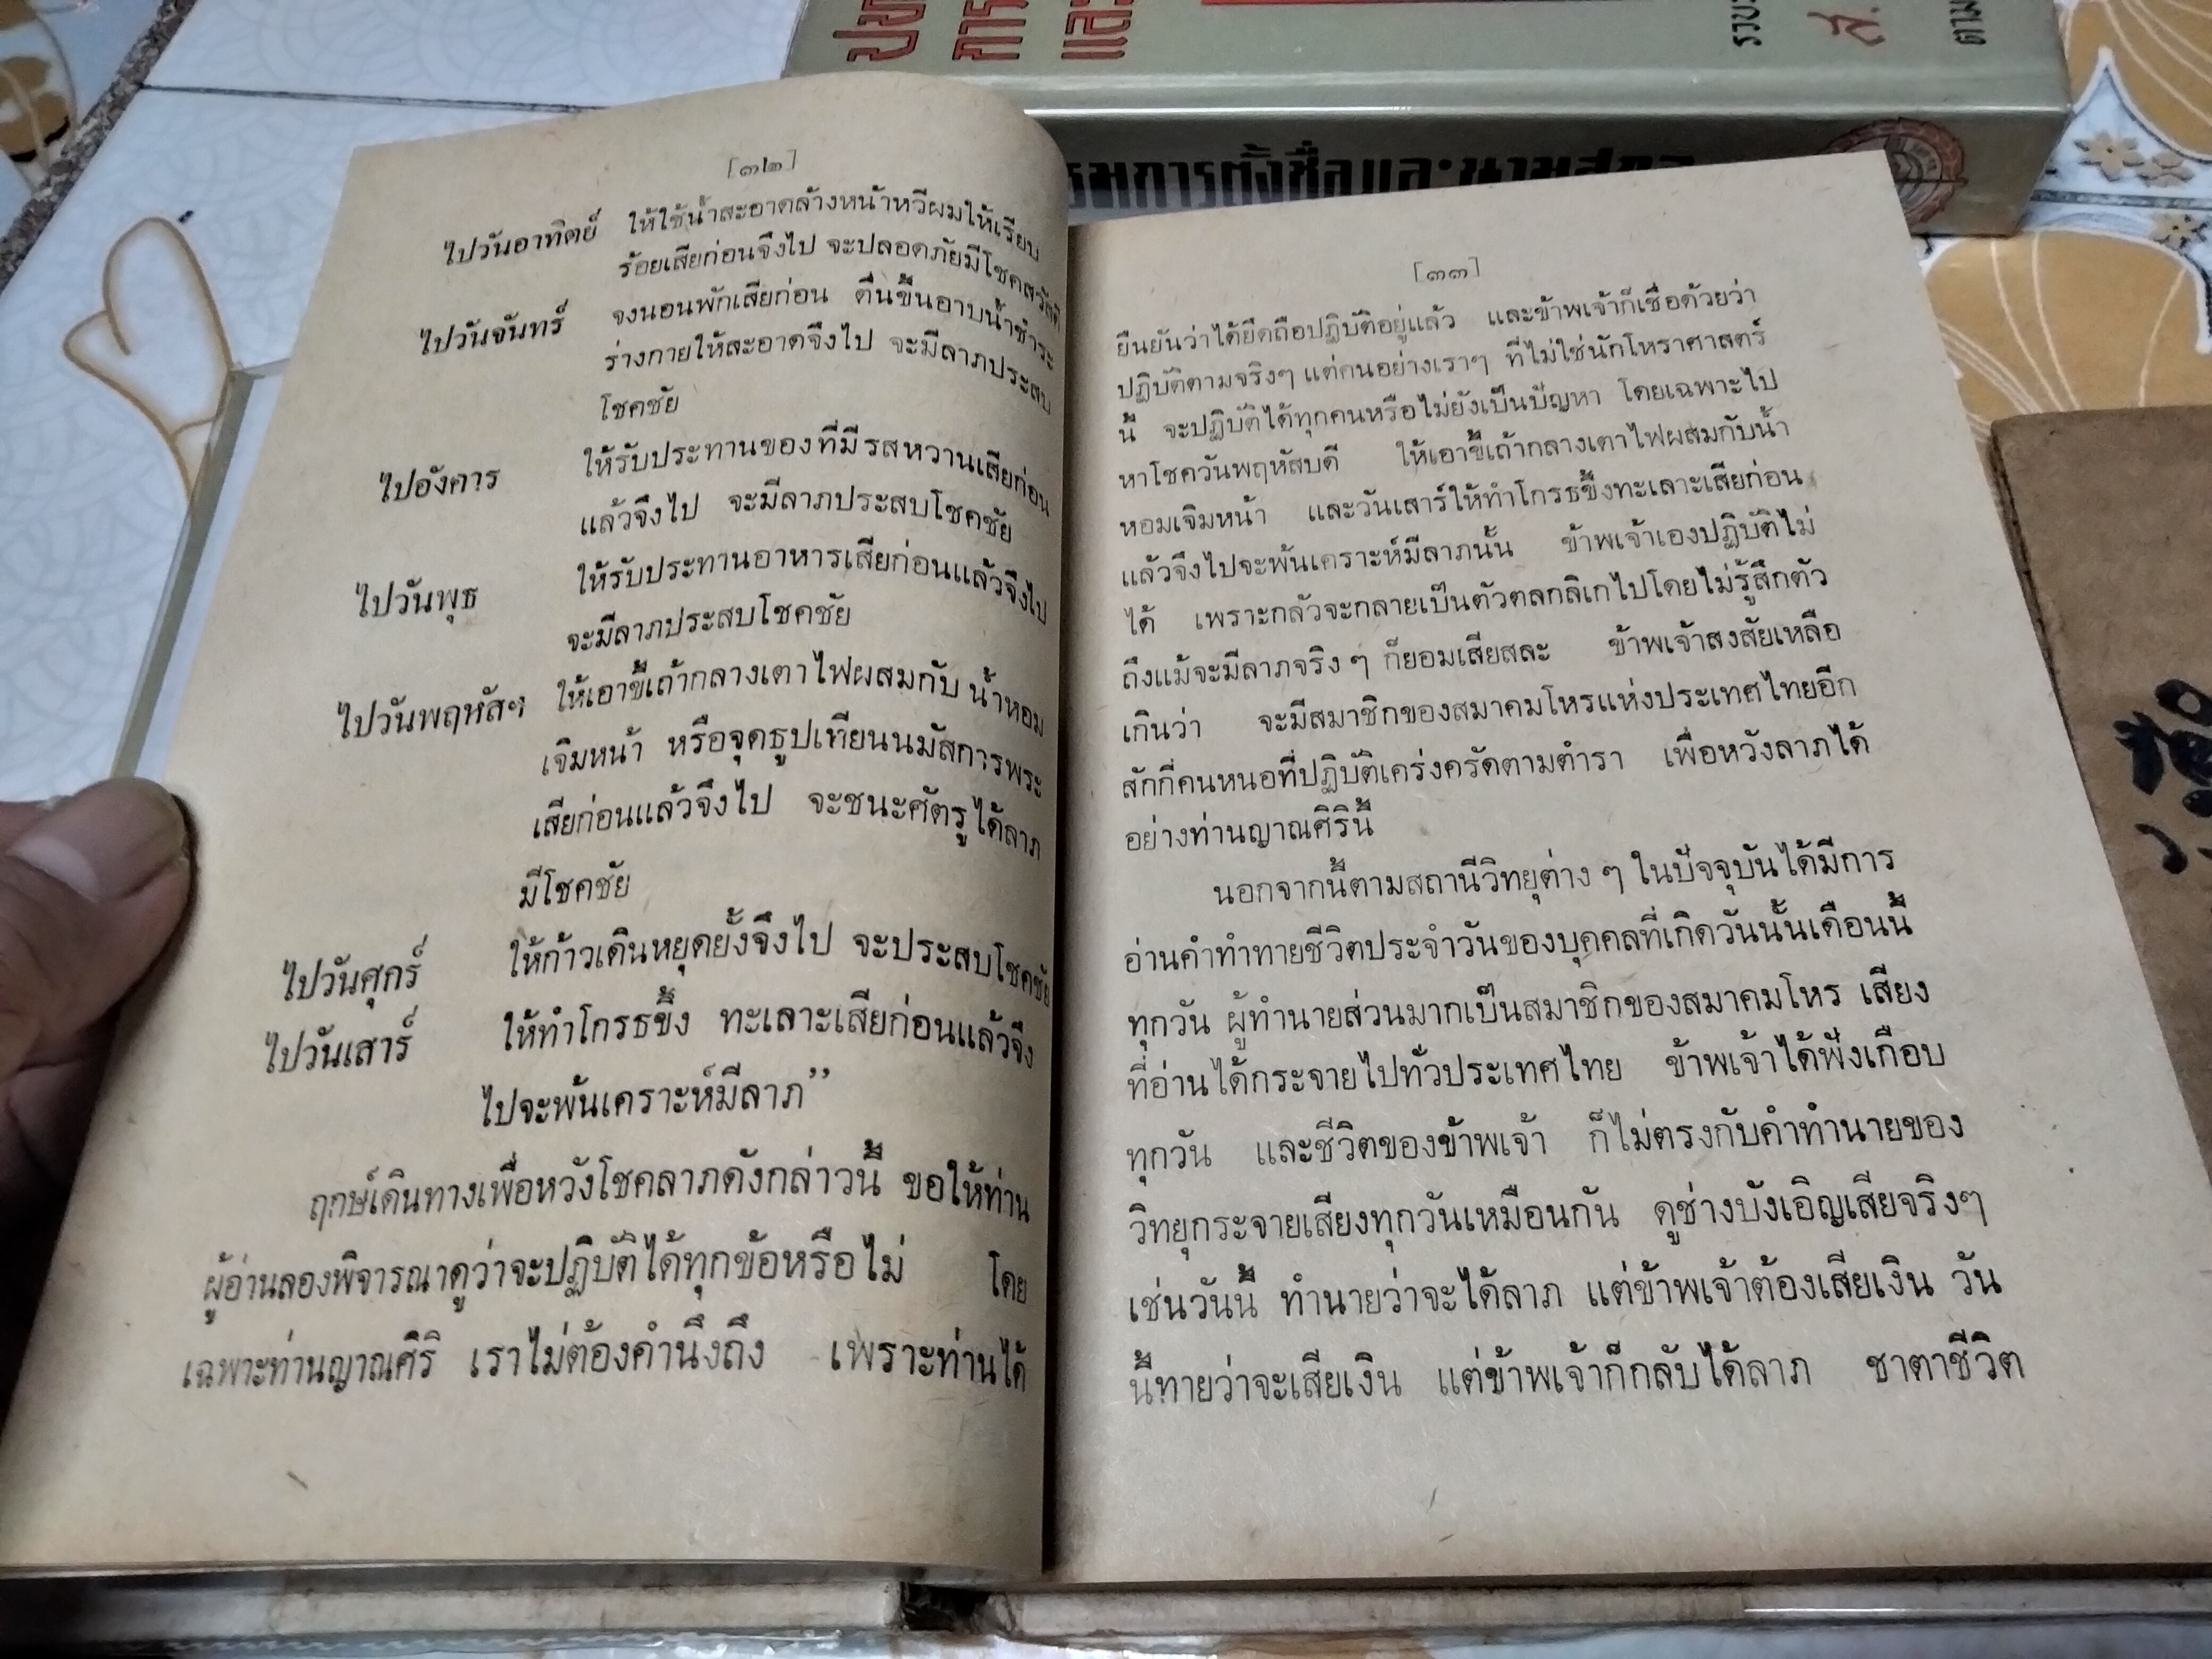 [๓๒]
ไปวันอาทิตย์ ให้ใช้น้ำสะอาดล้างหน้าหวีผมให้เรียบ
ร้อยเสียก่อนจึงไป จะปลอดภัยมีโชคสวัสดิ
ไปวันจันทร์ จงนอนพักเสียก่อน ตื่นขึ้นอาบน้ำชำระ
ร่างกายให้สะอาดจึงไป จะมีลาภประสบ
โชคชัย
ไปอังคาร ให้รับประทานของที่มีรสหวานเสียก่อน
แล้วจึงไป จะมีลาภประสบโชคชัย
ไปวันพุธ ให้รับประทานอาหารเสียก่อนแล้วจึงไป
จะมีลาภประสบโชคชัย
ไปวันพฤหัสฯ ให้เอาขี้เถ้ากลางเตาไฟผสมกับน้ำหอม
เจิมหน้า หรือจุดธูปเทียนนมัสการพระ
เสียก่อนแล้วจึงไป จะชนะศัตรูได้ลาภ
มีโชคชัย
ไปวันศุกร์ ให้ก้าวเดินหยุดยั้งจึงไป จะประสบโชคชัย
ไปวันเสาร์ ให้ทำโกรธขึ้ง ทะเลาะเสียก่อนแล้วจึง
ไปจะพ้นเคราะห์มีลาภ”
ฤกษ์เดินทางเพื่อหวังโชคลาภดังกล่าวนี้ ขอให้ท่าน
ผู้อ่านลองพิจารณาดูว่าจะปฏิบัติได้ทุกข้อหรือไม่ โดย
เฉพาะท่านญาณศิริ เราไม่ต้องคำนึงถึง เพราะท่านได้
[๓๓]
ยืนยันว่าได้ยึดถือปฏิบัติอยู่แล้ว และข้าพเจ้าก็เชื่อด้วยว่า
ปฏิบัติตามจริงๆ แต่คนอย่างเราๆ ที่ไม่ใช่นักโหราศาสตร์
นี้ จะปฏิบัติได้ทุกคนหรือไม่ยังเป็นปัญหา โดยเฉพาะไป
หาโชควันพฤหัสบดี ให้เอาขี้เถ้ากลางเตาไฟผสมกับน้ำ
หอมเจิมหน้า และวันเสาร์ให้ทำโกรธขึ้งทะเลาะเสียก่อน
แล้วจึงไปจะพ้นเคราะห์มีลาภนั้น ข้าพเจ้าเองปฏิบัติไม่
ได้ เพราะกลัวจะกลายเป็นตัวตลกลิเกไปโดยไม่รู้สึกตัว
ถึงแม้จะมีลาภจริง ๆ ก็ยอมเสียสละ ข้าพเจ้าสงสัยเหลือ
เกินว่า จะมีสมาชิกของสมาคมโหรแห่งประเทศไทยอีก
สักกี่คนหนอที่ปฏิบัติเคร่งครัดตามตำรา เพื่อหวังลาภได้
อย่างท่านญาณศิรินี้
นอกจากนี้ตามสถานีวิทยุต่าง ๆ ในปัจจุบันได้มีการ
อ่านคำทำทายชีวิตประจำวันของบุคคลที่เกิดวันนั้นเดือนนี้
ทุกวัน ผู้ทำนายส่วนมากเป็นสมาชิกของสมาคมโหร เสียง
ที่อ่านได้กระจายไปทั่วประเทศไทย ข้าพเจ้าได้ฟังเกือบ
ทุกวัน และชีวิตของข้าพเจ้า ก็ไม่ตรงกับคำทำนายของ
วิทยุกระจายเสียงทุกวันเหมือนกัน ดูช่างบังเอิญเสียจริงๆ
เช่นวันนี้ ทำนายว่าจะได้ลาภ แต่ข้าพเจ้าต้องเสียเงิน วัน
นี้ทายว่าจะเสียเงิน แต่ข้าพเจ้าก็กลับได้ลาภ ชาตาชีวิต